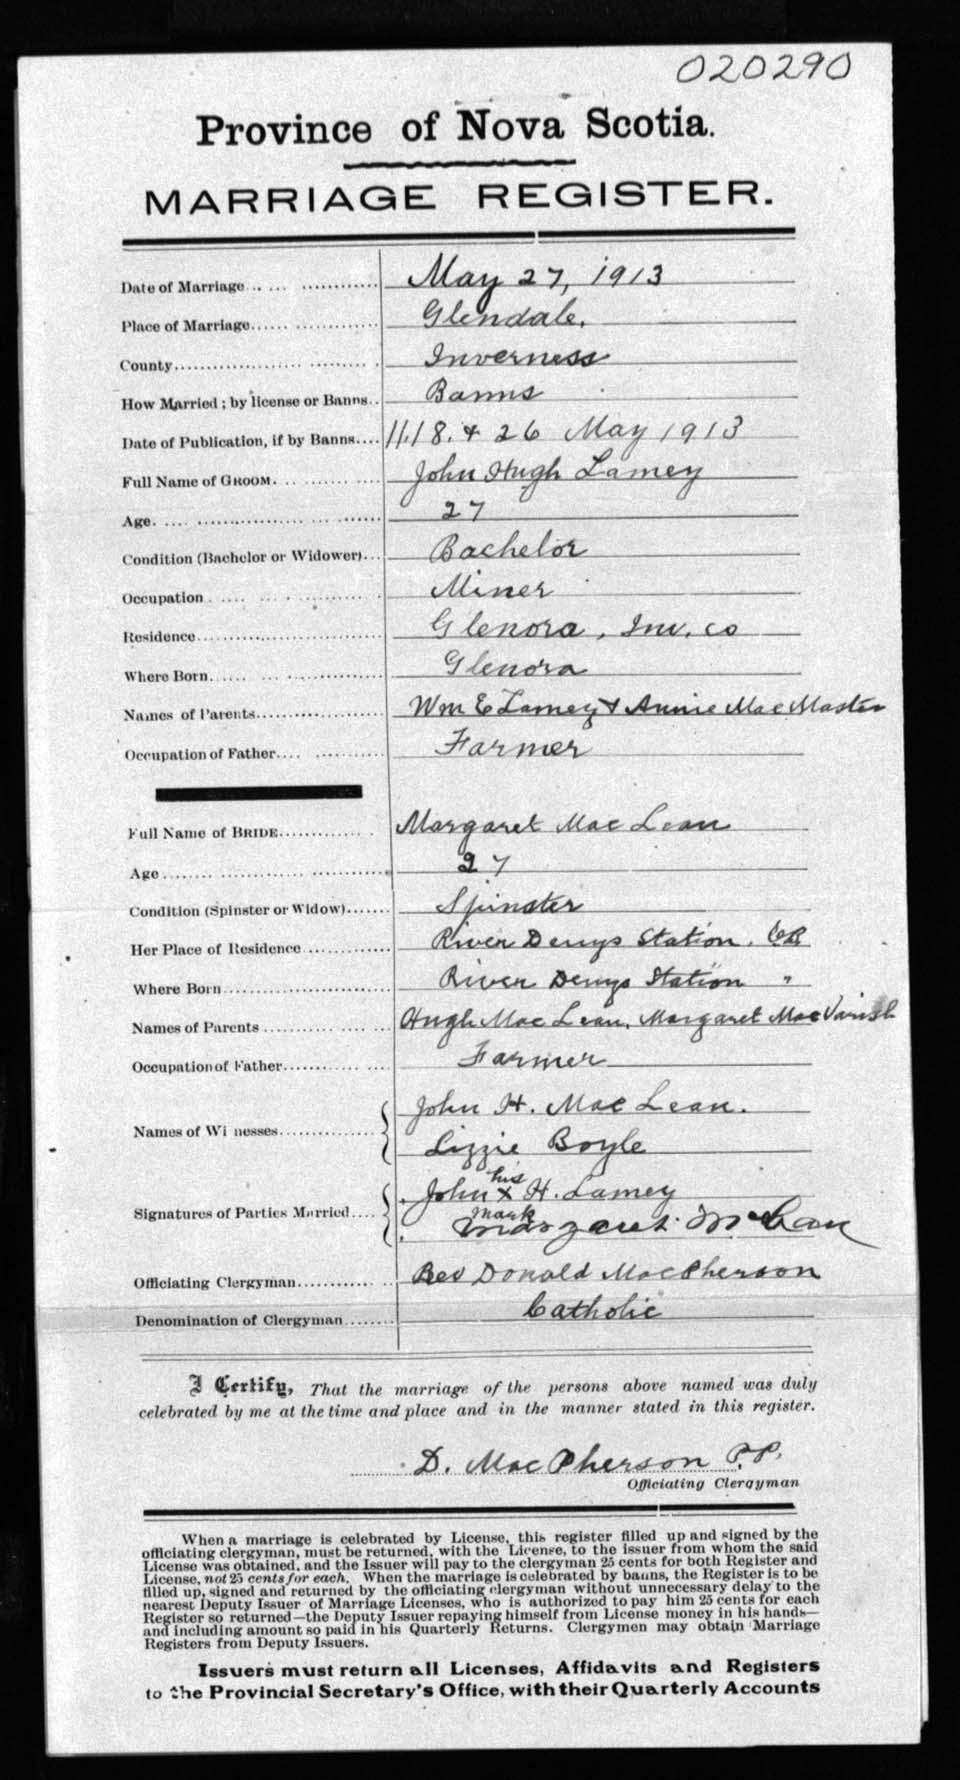 020290
Province of Nova Scotia.
MARRIAGE REGISTER.
Date of Marriage May 27, 1913
Place of Marriage Glendale.
County Inverness
How Married; by license or Banns Banns
Date of Publication, if by Banns 11, 18. & 26 May 1913
Full Name of GROOM John Hugh Lamey
Age 27
Condition (Bachelor or Widower) Bachelor
Occupation Miner
Residence Glenora, Inv. co
Where Born Glenora
Names of Parents Wm E Lamey & Annie MacMaster
Occupation of Father Farmer
Full Name of BRIDE Margaret MacLean
Age 27
Condition (Spinster or Widow) Spinster
Her Place of Residence River Denys Station. CB
Where Born River Denys Station "
Names of Parents Hugh MacLean, Margaret MacVarish
Occupation of Father Farmer
Names of Wi nesses John H. MacLean.
Lizzie Boyle
his
Signatures of Parties Married John x H. Lamey
mark
Margaret McLean
Officiating Clergyman Rev Donald MacPherson
Denomination of Clergyman Catholic
I Certify, That the marriage of the persons above named was duly
celebrated by me at the time and place and in the manner stated in this register.
D. MacPherson P.P.
Officiating Clergyman
When a marriage is celebrated by License, this register filled up and signed by the
officiating clergyman, must be returned, with the License, to the issuer from whom the said
License was obtained, and the Issuer will pay to the clergyman 25 cents for both Register and
License, not 25 cents for each. When the marriage is celebrated by banns, the Register is to be
filled up, signed and returned by the officiating clergyman without unnecessary delay to the
nearest Deputy Issuer of Marriage Licenses, who is authorized to pay him 25 cents for each
Register so returned—the Deputy Issuer repaying himself from License money in his hands—
and including amount so paid in his Quarterly Returns. Clergymen may obtain Marriage
Registers from Deputy Issuers.
Issuers must return all Licenses, Affidavits and Registers
to the Provincial Secretary's Office, with their Quarterly Accounts